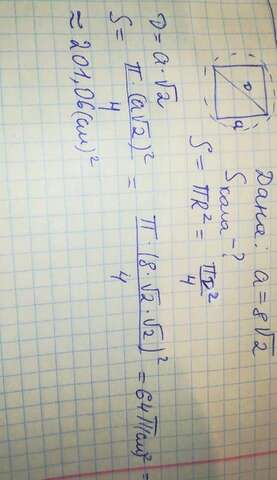 Дана: a = 8√2
Sкола - ?
D
a
S = πR² = πD²/4
D = a·√2
S = π·(a√2)²/4 = π·(8·√2·√2)²/4 = 64π(см)² =
≈ 201,06(см)²